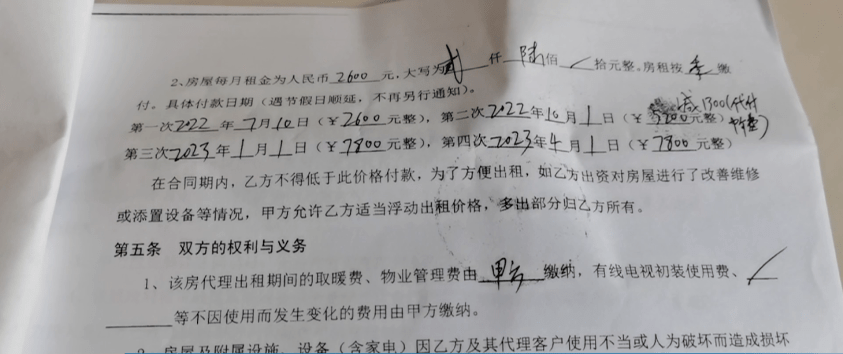 2、房屋每月租金为人民币 2600 元,大写为 贰 仟 陆佰 / 拾元整。房租按 季 缴
付。具体付款日期(遇节假日顺延,不再另行通知)。
第一次2022年7月10日(¥2600元整),第二次2022年10月1日(¥5200元整)
第三次2023年1月1日(¥7800元整),第四次2023年4月1日(¥7800元整)
在合同期内,乙方不得低于此价格付款,为了方便出租,如乙方出资对房屋进行了改善维修
或添置设备等情况,甲方允许乙方适当浮动出租价格,多出部分归乙方所有。
第五条 双方的权利与义务
1、该房代理出租期间的取暖费、物业管理费由 甲方 缴纳,有线电视初装使用费、/
等不因使用而发生变化的费用由甲方缴纳。
2、房屋及附属设施、设备(含家电)因乙方及其代理客户使用不当或人为破坏而造成损坏